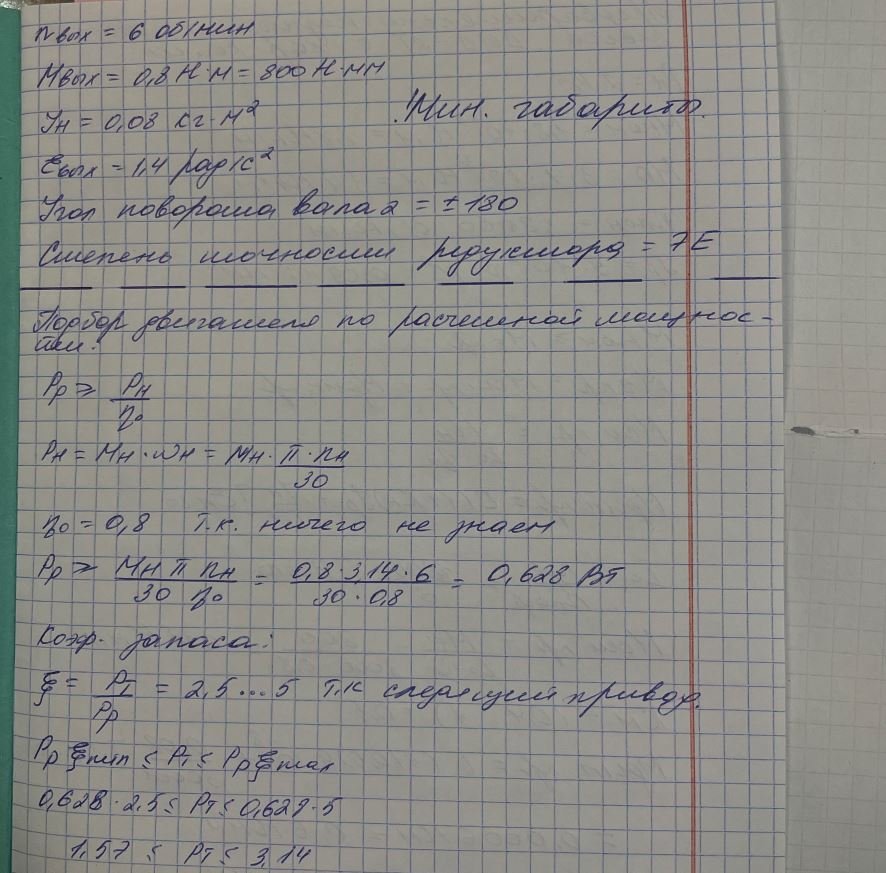 nвых = 6 об/мин
Mвых = 0,8 Н·м = 800 Н·мм
Jн = 0,08 кг·м²
Мин. габариты.
εвых = 1,4 рад/с²
Угол поворота вала = ±180
Степень точности редуктора = 7Е
Подбор двигателя по расчетной мощнос-
ти:
Pр ≥ Pн / η₀
Pн = Mн · ωн = Mн · π · nн / 30
η₀ = 0,8 т.к. ничего не знаем
Pр ≥ Mн π nн / 30 η₀ = 0,8·3,14·6 / 30·0,8 = 0,628 Вт
Коэф. запаса:
ξ = Pт / Pр = 2,5...5 т.к следящий привод.
Pр ξmin ≤ Pт ≤ Pр ξmax
0,628·2,5 ≤ Pт ≤ 0,628·5
1,57 ≤ Pт ≤ 3,14